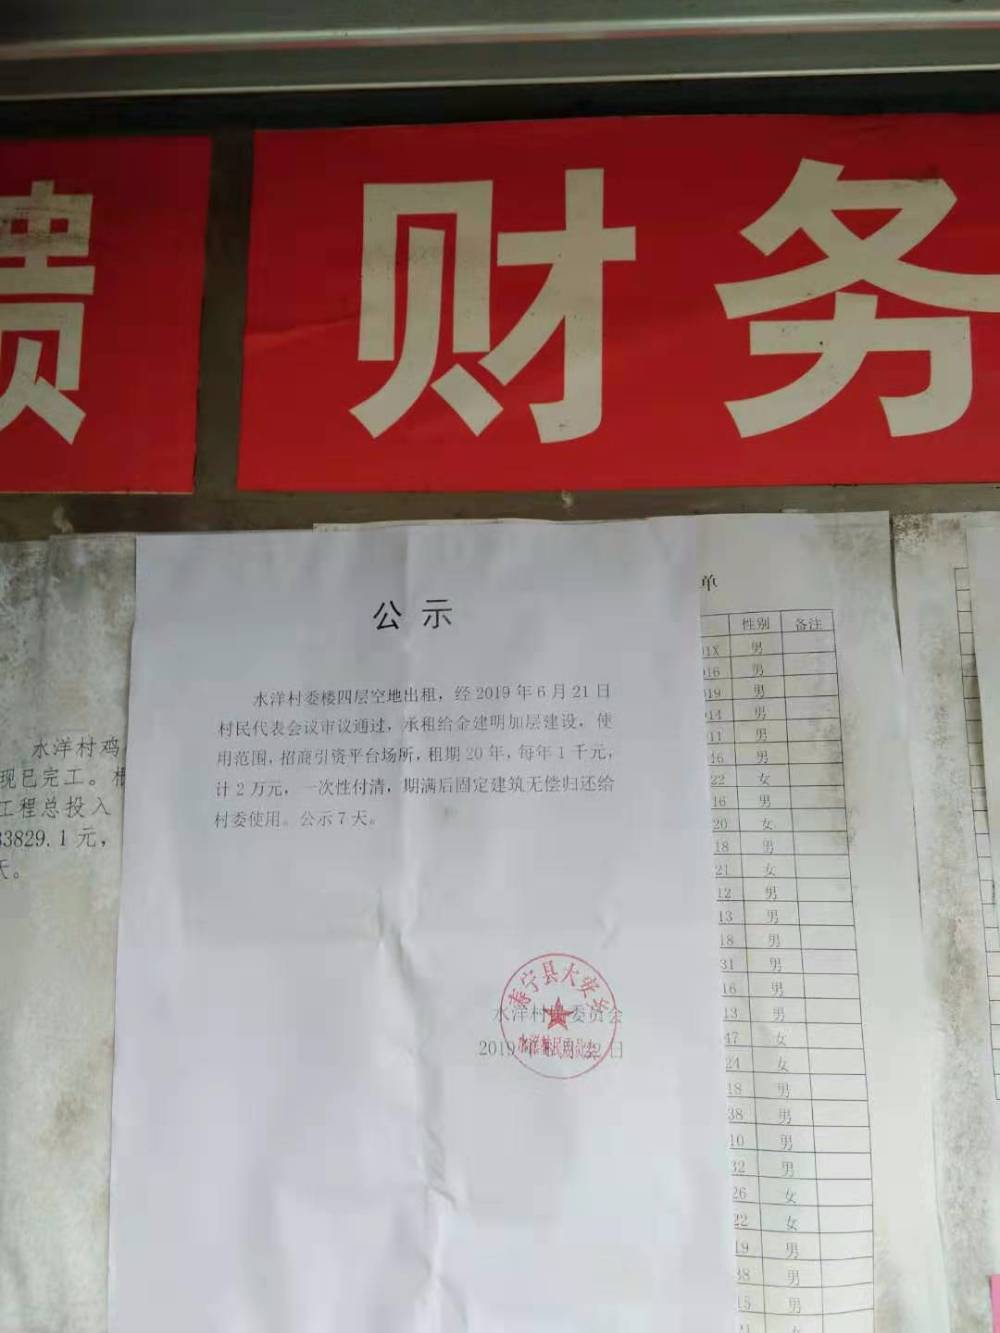 财务
公示
水洋村委楼四层空地出租，经2019年6月21日
村民代表会议审议通过，承租给金建明加层建设，使
用范围，招商引资平台场所，租期20年，每年1千元，
计2万元，一次性付清，期满后固定建筑无偿归还给
村委使用。公示7天。
水洋村 委员会
2019年 22日
宁县大安
水洋村鸡
现已完工。
工程总投入
33829.1元，
天。
单
性别 备注
01X 男
016 男
019 男
014 男
011 男
16 男
22 女
16 男
20 女
18 男
21 女
12 男
13 男
18 男
31 男
16 男
13 男
47 女
24 女
18 男
38 男
10 男
32 男
26 女
22 女
19 男
38 男
15 男
21 女